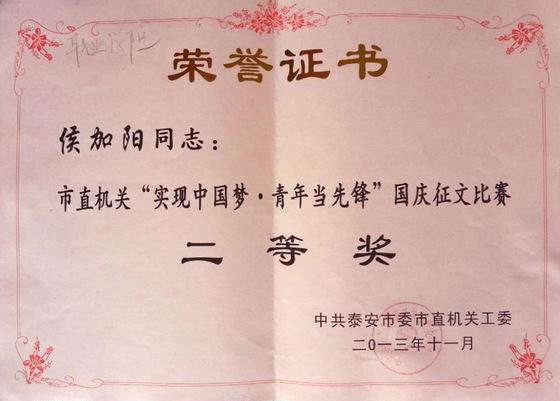 职业学院
荣誉证书
侯加阳同志：
市直机关“实现中国梦·青年当先锋”国庆征文比赛
二等奖
中共泰安市委市直机关工委
二〇一三年十一月